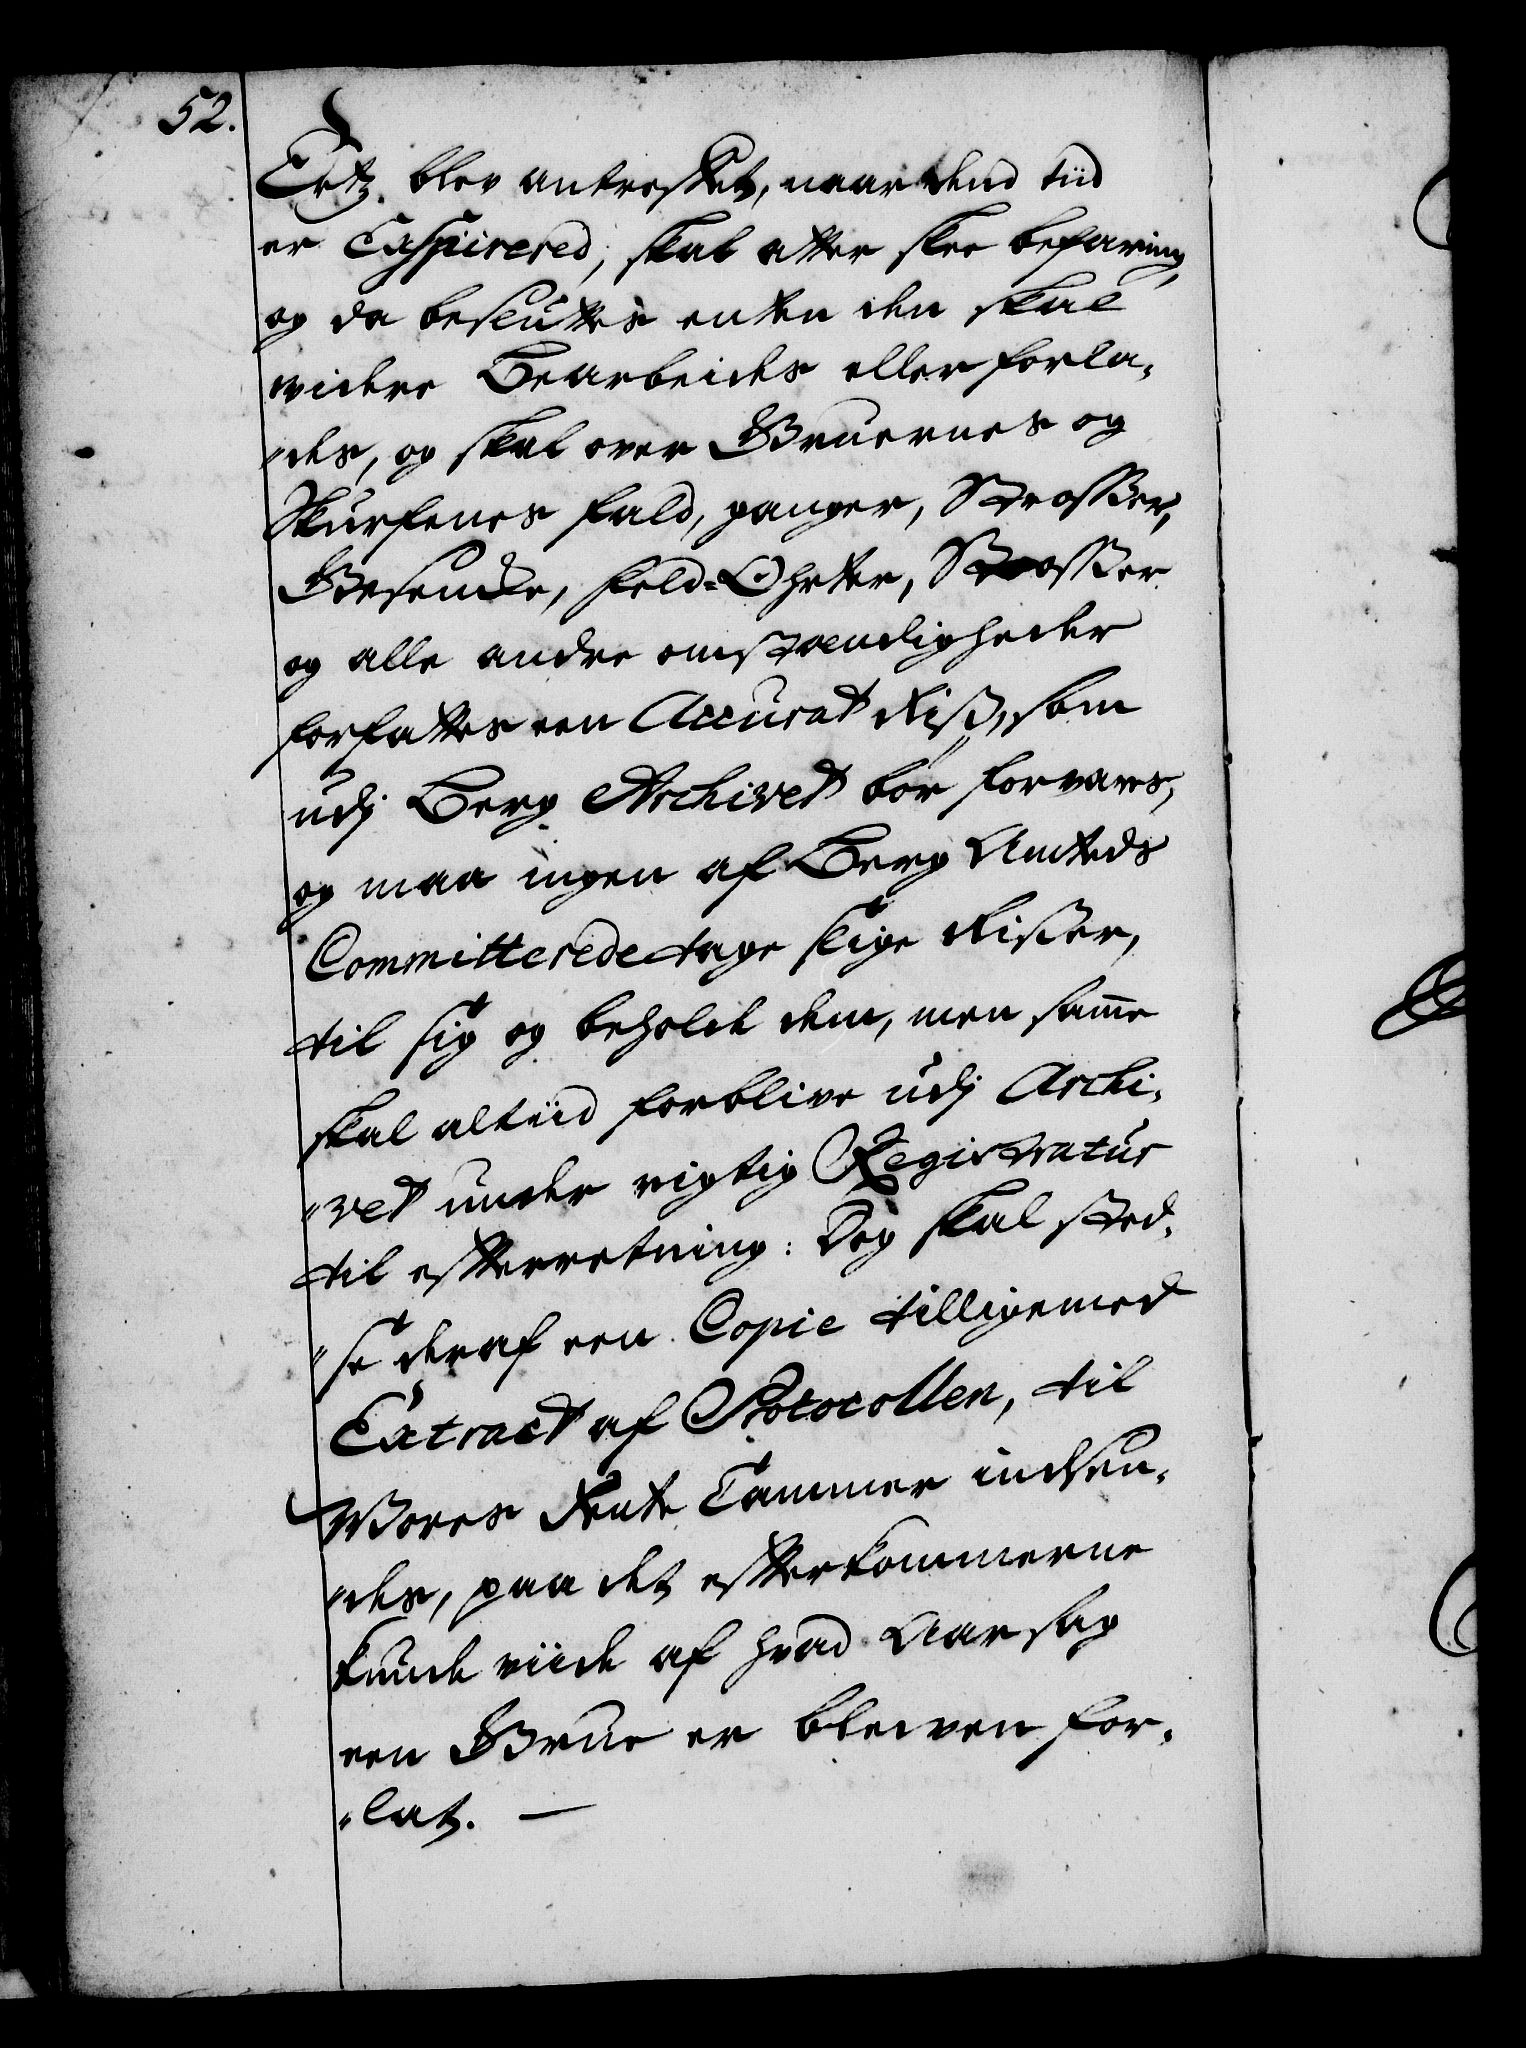 52.
Ertz blev antreffet, naar dend tiid
er Exspirered, skal atter skee befaring,
og da besluttes enten den skal
videre Bearbeides eller forla-
"des, og skal over Gruernes og
Skurfenes fald, ganger, Strosser,
Gesencke, feld-Ohrter, Strosser
og alle andre omstændigheder
forfattes een Accurat Riss, som
udj Berg Archivet bør forvares,
og maa ingen af Berg Amteds
Committerede tage slige Risser,
til sig og beholde dem, men samme
skal altiid forblive udj Archi-
"vet under rigtig Registratur
til efterretning: Dog skal sted-
"se deraf een Copie tilligemed
Extract af Protocollen, til
Vores Rente Cammer indsen-
"des, paa det efterkommerne
kunde viide af hvad Aarsag
een Grue er bleven for-
"lat. —